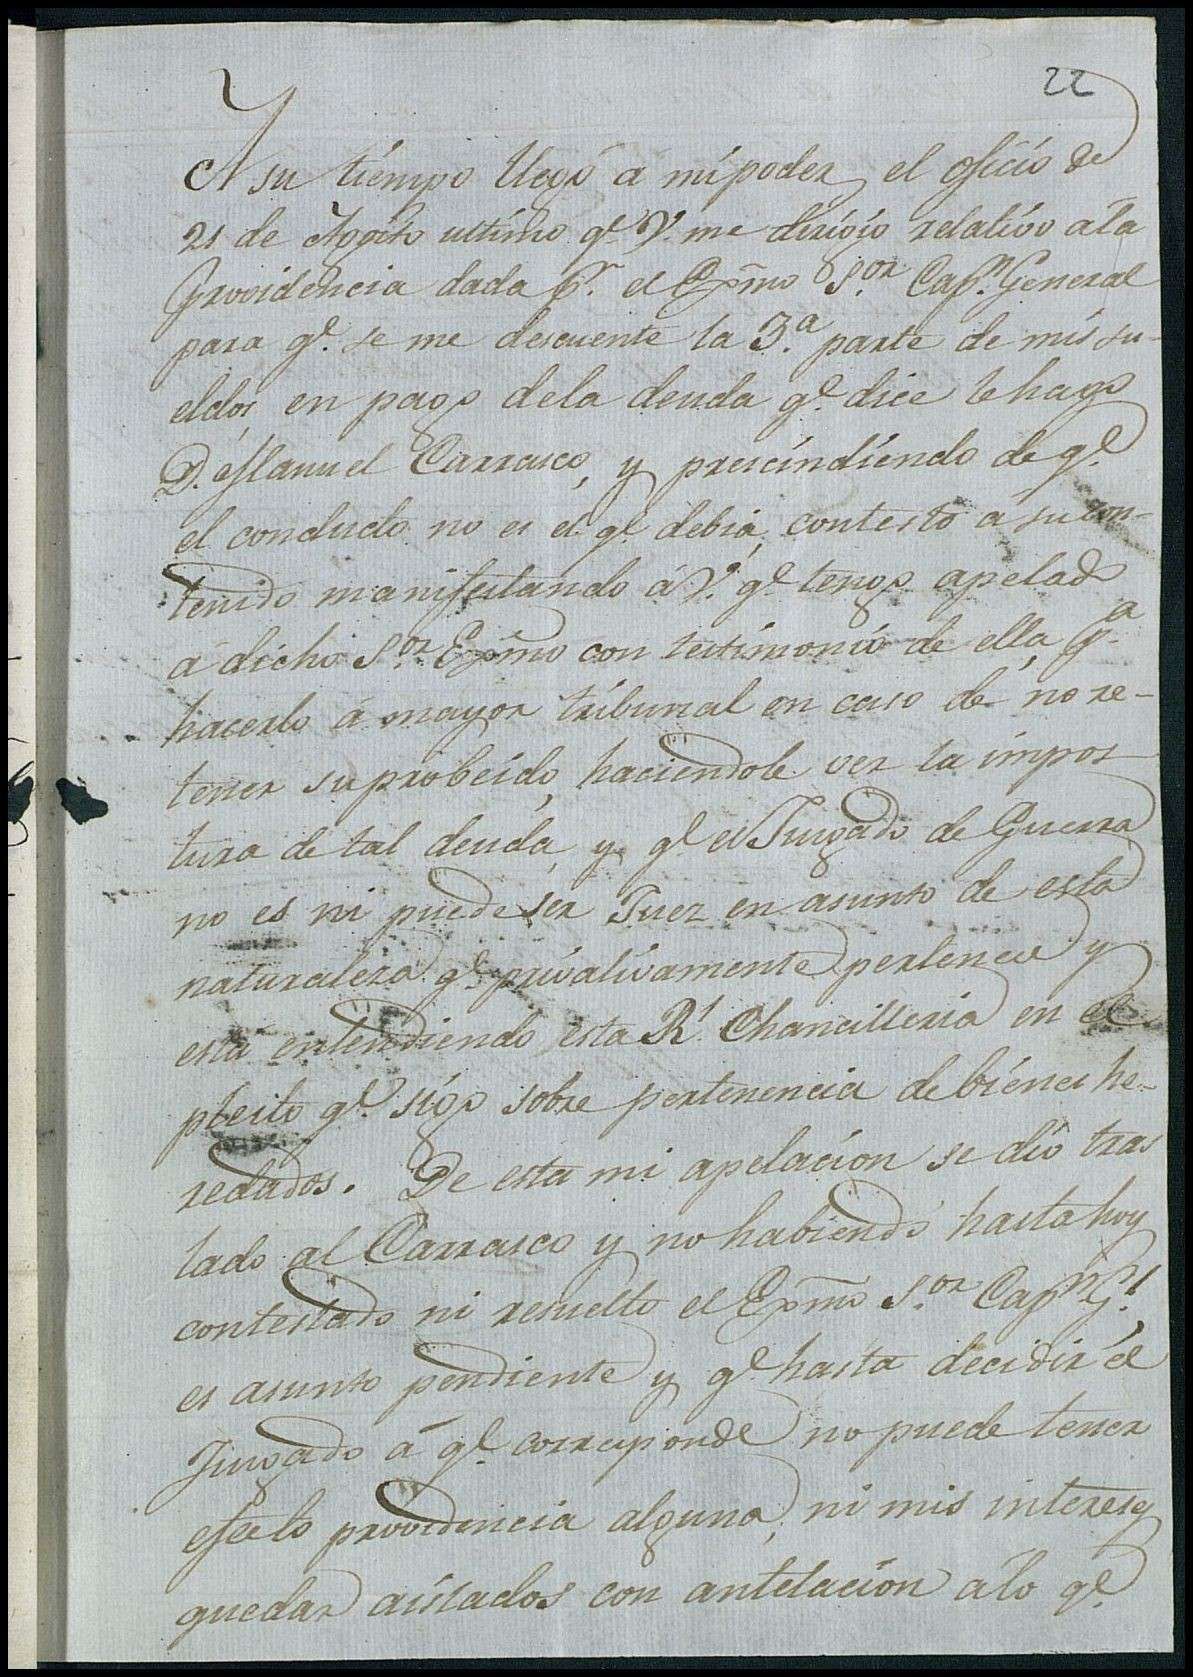 22
A su tiempo llegó a mi poder el oficio de
21 de Agosto ultimo q.e V. me dirigio relativo a la
Providencia dada p.r el Exmo S.or Cap.n General
para q.e se me descuente la 3.a parte de mis su-
eldos en pago de la deuda q.e dice le hago
D. Manuel Carrasco, y prescindiendo de q.e
el conducto no es el q.e debia, contesto a su con-
tenido manifestando á V. q.e tengo apelado
a dicho S.or Exmo con testimonio de ella p.a
hacerlo á mayor tribunal en caso de no re-
tener su probeido, haciendole ver la impos
tura de tal deuda, y q.e el Juzgado de Guerra
no es ni puede ser Juez en asunto de esta
naturaleza q.e privativamente pertenece y
está entendiendo esta R.l Chancilleria en el
pleito q.e sigo sobre pertenencia de bienes he-
redados. De esta mi apelacion se dió tras
lado al Carrasco y no habiendo hasta hoy
contestado ni resuelto el Exmo S.or Cap.n G.l
es asunto pendiente y q.e hasta decidir el
Juzgado á q.e corresponde no puede tener
efecto providencia alguna, ni mis intereses
quedar aislados con antelacion a lo q.e